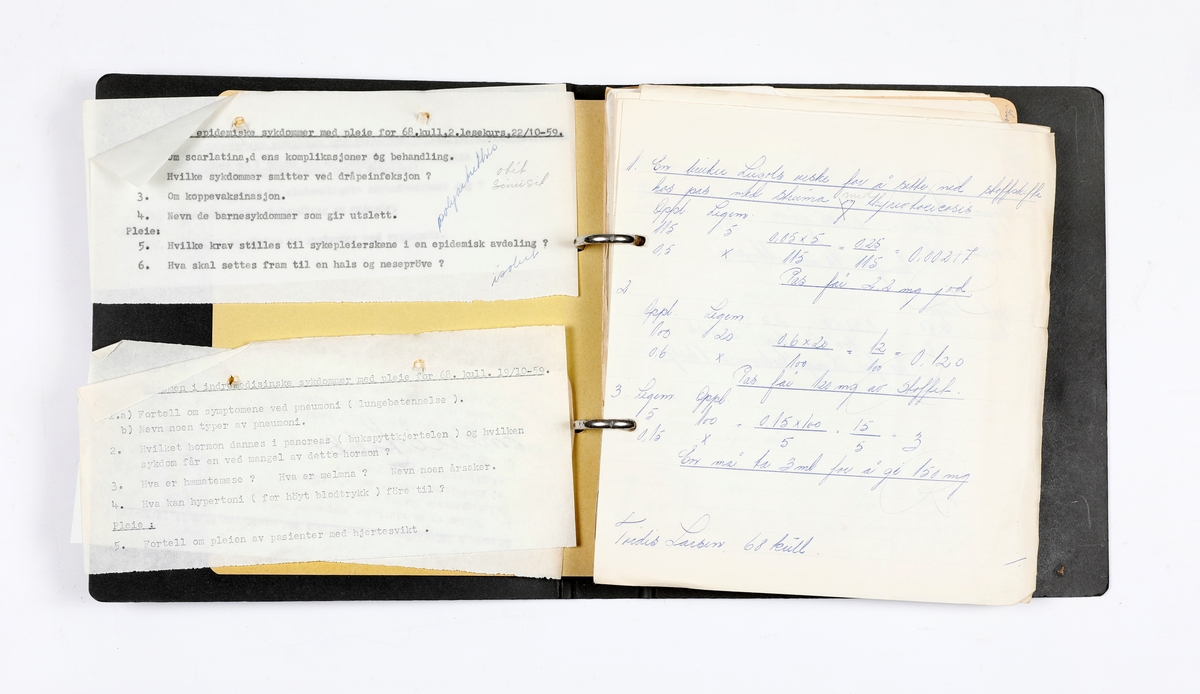 epidemiske sykdommer med pleie for 68.kull,2.lesekurs,22/10-59.
Om scarlatina,d ens komplikasjoner og behandling.
Hvilke sykdommer smitter ved dråpeinfeksjon ?
3. Om koppevaksinasjon.
4. Nevn de barnesykdommer som gir utslett.
Pleie:
5. Hvilke krav stilles til sykepleierskene i en epidemisk avdeling ?
6. Hva skal settes fram til en hals og nesepröve ?
polyarthritis
otit
isolert
i indremedisinske sykdommer med pleie for 68. kull. 19/10-59.
1.a) Fortell om symptomene ved pneumoni ( lungebetennelse ).
b) Nevn noen typer av pneumoni.
2. Hvilket hormon dannes i pancreas ( bukspyttkjertelen ) og hvilken
sykdom får en ved mangel av dette hormon ?
3. Hva er hematemese ? Hva er melæna ? Nevn noen årsaker.
4. Hva kan hypertoni ( for höyt blodtrykk ) före til ?
Pleie :
5. Fortell om pleien av pasienter med hjertesvikt .
1. En bruker Lugols veske for å sette ned stoffskifte
hos pas med struma thyreotoxicosis
Oppl Legem.
115 5 0.05 x 5 = 0.25 = 0.00217
0,5 x 115 115
Pas får 2.2 mg jod
2
Oppl Legem
100 20 0.6 x 20 = 12 = 0.120
0,6 x 100 100
Pas får 120 mg av stoffet.
3 Legem Oppl
5 100 = 0.15 x 100 = 15 = 3
0,15 x 5 5
En må ta 3 ml for å gi 150 mg
Tordis Larsen. 68 kull.